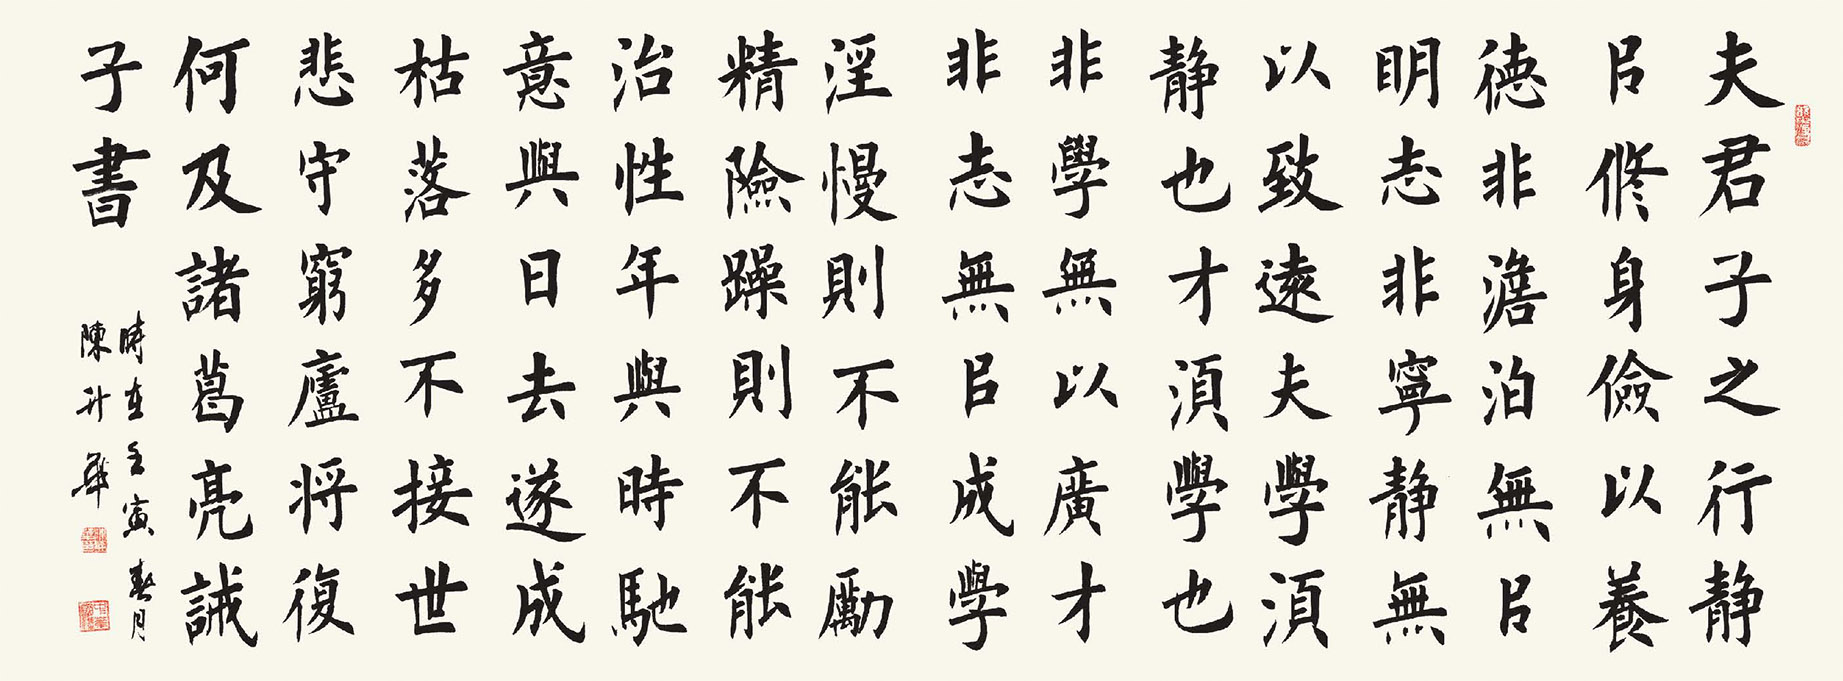 夫君子之行静
㠯修身儉以養
德非澹泊無㠯
明志非寧静無
以致遠夫學須
静也才須學也
非學無以廣才
非志無㠯成學
淫慢則不能勵
精險躁則不能
治性年與時馳
意與日去遂成
枯落多不接世
悲守窮廬将復
何及諸葛亮誡
子書
時在壬寅春月
陳升華